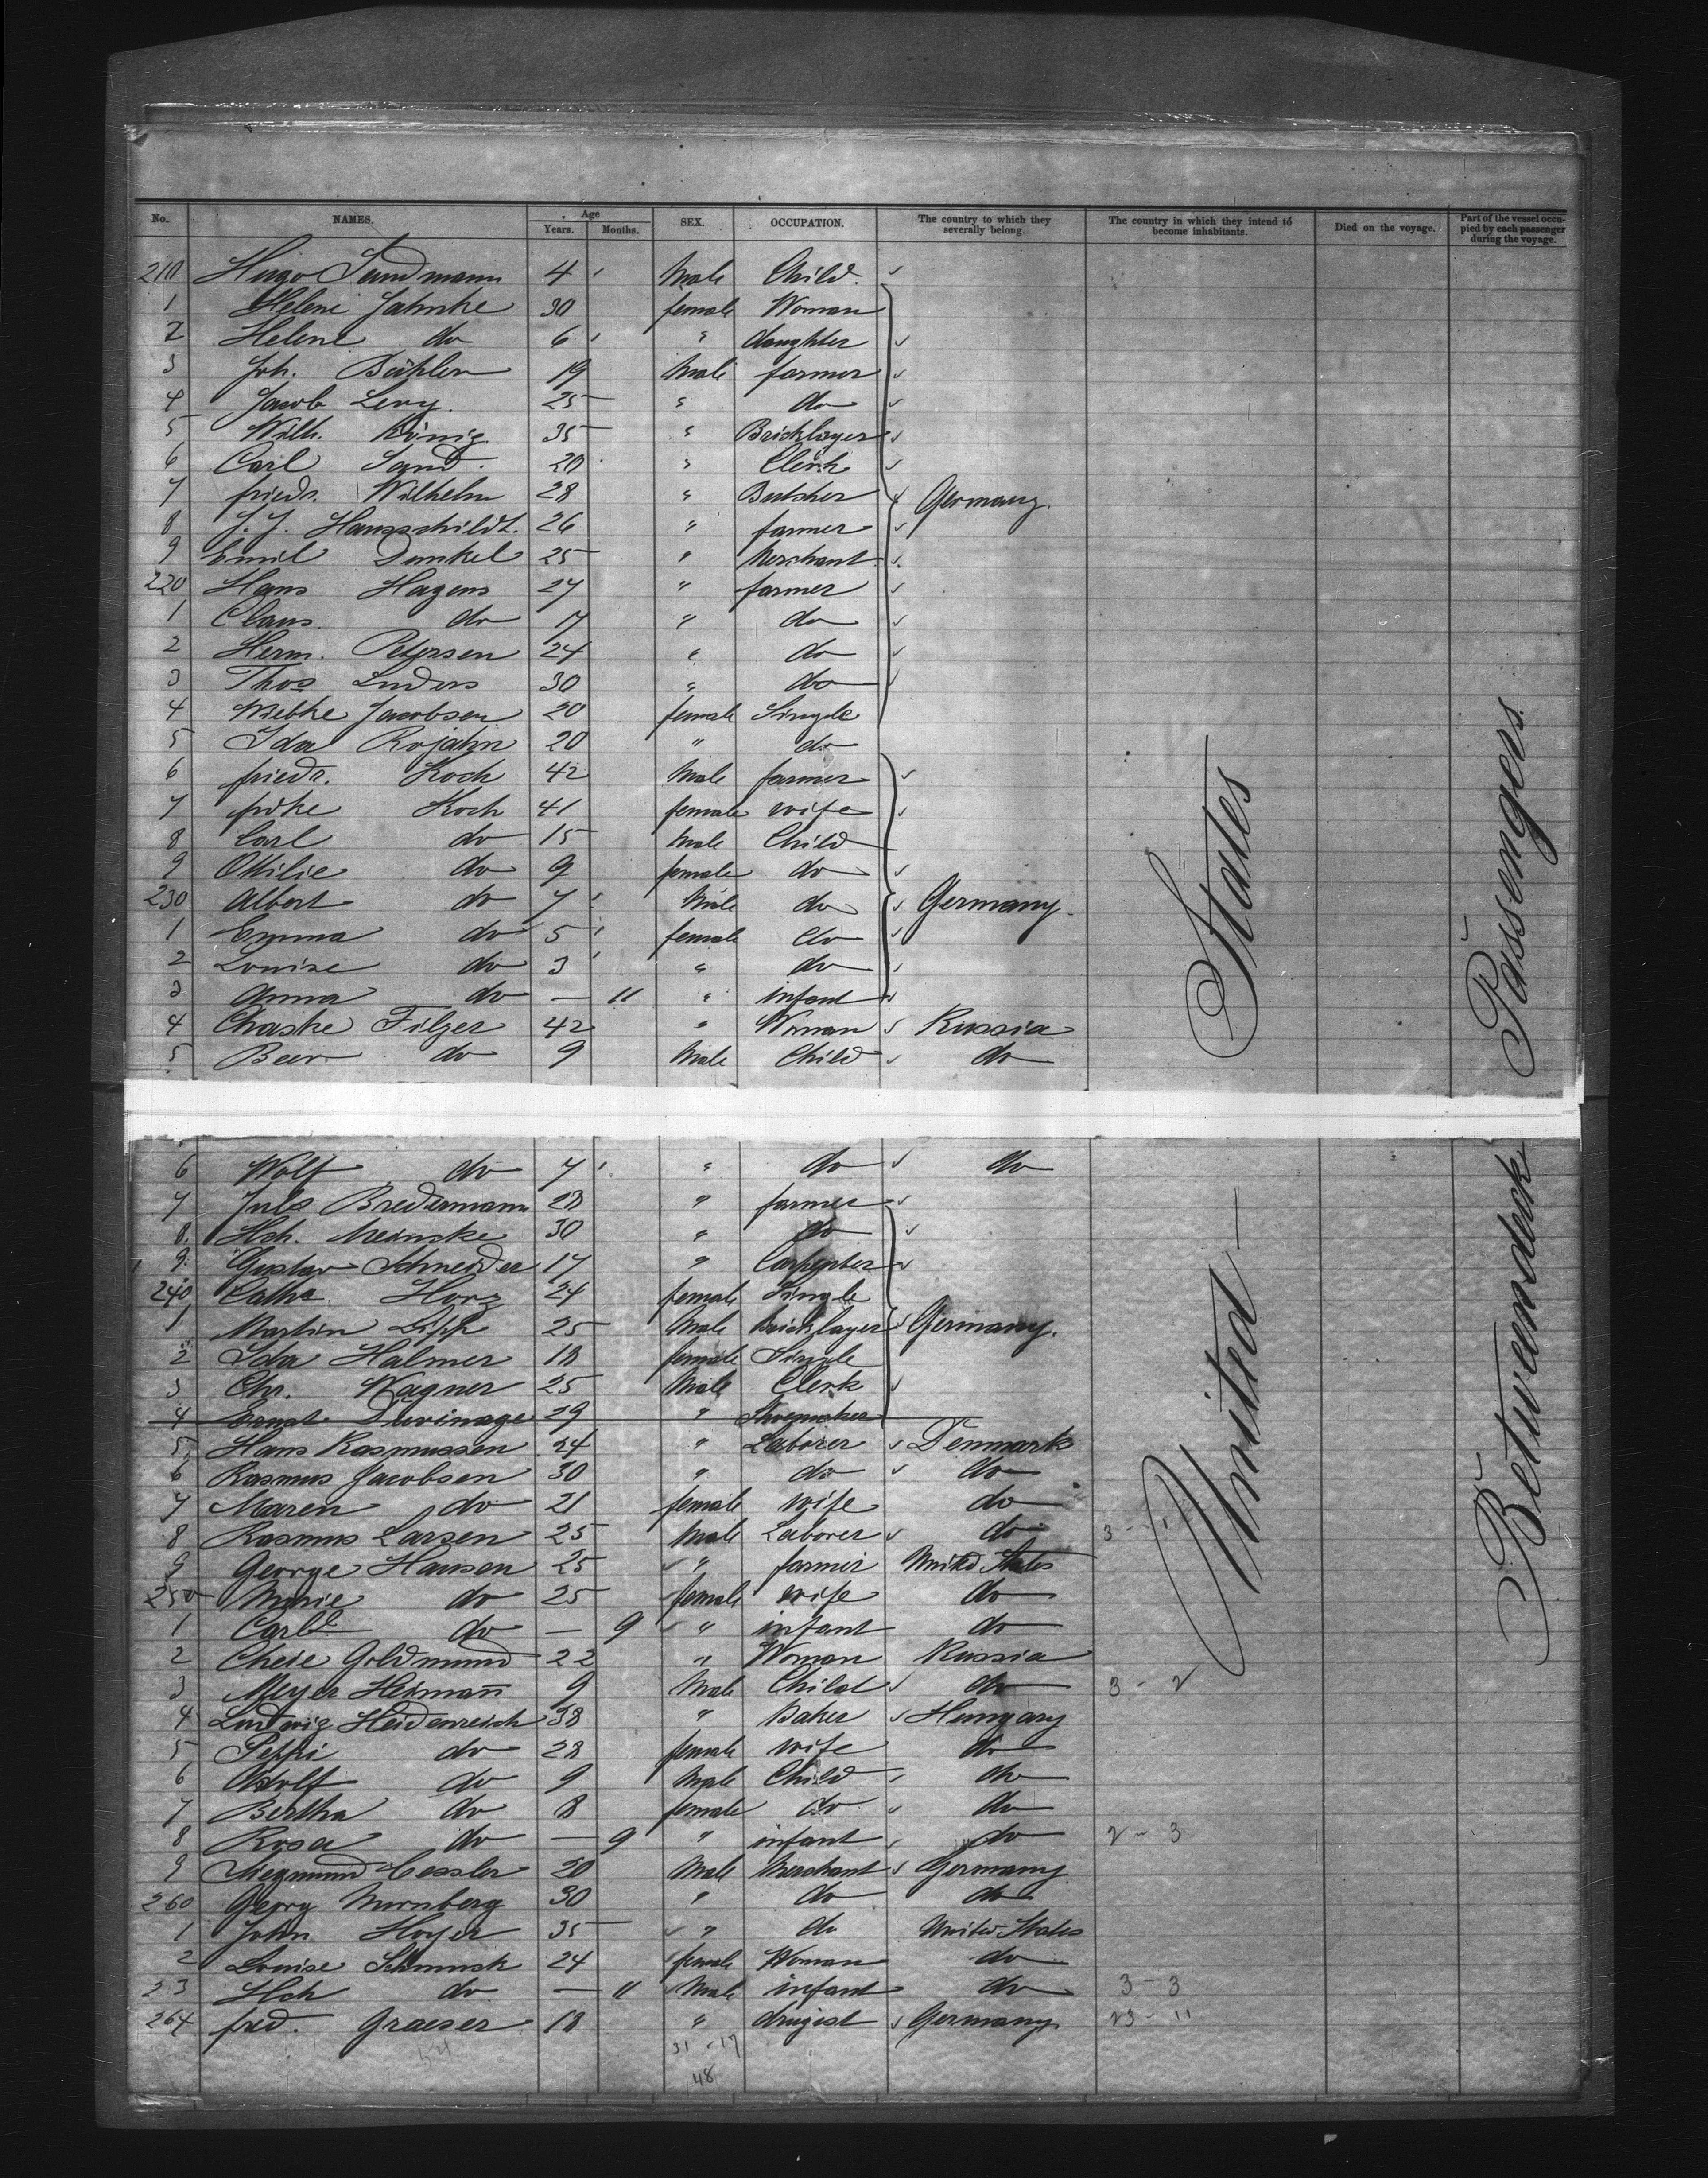 No. NAMES. Age Years. Months. SEX. OCCUPATION. The country to which they severally belong. The country in which they intend to become inhabitants. Died on the voyage. Part of the vessel occupied by each passenger during the voyage.
210 Hugo Sandmann 4 Male Child
1 Helene Jahnke 30 female Woman
2 Helene do 6 " daughter
3 Joh. Bühler 19 Male farmer
4 Jacob Levy 25 " do
5 Wilh. König 35 " Bricklayer
6 Carl Sand. 20 " Clerk
7 friedr. Wilhelm 28 " Butcher Germany.
8 J. J. Hausschildt. 26 " farmer
9 Emil Dunkel 25 " Merchant
220 Hans Hagens 27 " farmer
1 Claus do 17 " do
2 Herm. Petersen 24 " do
3 Thos Luders 30 " do
4 Wiebke Jacobsen 20 female Single
5 Ida Rojahn 20 " do
6 friedr. Koch 42 Male farmer
7 Koch 41 female wife
8 Carl do 15 Male Child
9 Ottilie do 9 female do
230 Albert do 7 Male do Germany.
1 Emma do 5 female do
2 Louise do 3 " do
3 Anna do — 11 " infant
4 Chaske Filzer 42 " Woman Russia
5 Beer do 9 Male Child do
6 Wolf do 7 " do do
7 Juls Bredermann 28 " farmer
8. Hch. Meinske 30 " do
9. Gustav Schneider 17 " Carpenter
240 Catha Horz 24 female Single
1 Martin Lipp 25 Male Bricklayer Germany.
2 Ida Halmer 18 female Single
3 Chr. Wagner 25 Male Clerk
4 Ernst Duvinage 29 " Shoemaker
5 Hans Rasmussen 24 " Laborer Denmark
6 Rasmus Jacobsen 30 " do do
7 Maren do 21 female wife do
8 Rasmus Larsen 25 Male Laborer do 3 - 1
9 George Hansen 25 " farmer United States
250 Marie do 25 female wife do
1 Carl do — 9 " infant do
2 Cheie Goldmund 22 " Woman Russia
3 Meyer Hermann 9 Male Child do 3 - 2
4 Ludwig Heidenreich 38 " Baker Hungary
5 Peppi do 28 female wife do
6 Adolf do 9 Male Child do
7 Bertha do 8 female do do
8 Rosa do — 9 " infant do 2 - 3
9 Siegmund Cessler 20 Male Merchant Germany
260 Georg Nurnberg 30 " do do
1 John Hoyer 35 " do United States
2 Louise Schmuck 24 female Woman do
23 Hch do — 11 Male infant do 3 - 3
264 fred. Graeser 18 " drugist Germany 23 - 11
31 - 17
48
United States
Betweendeck Passengers.